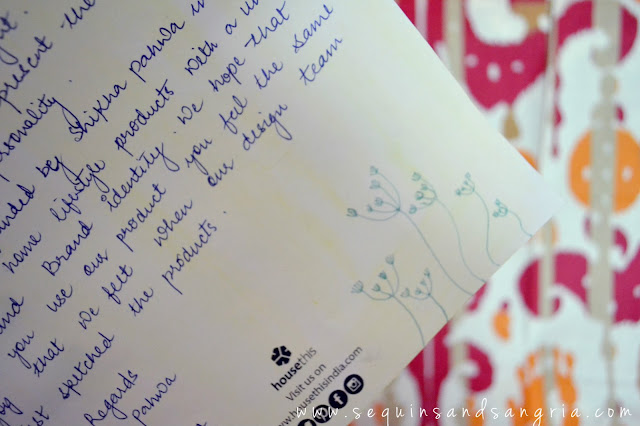 present the
Shikha Pahwa
home lifestyle products with a
and Brand identity. We hope that
you use our product you feel the same
that we felt when our design team
the products.
Regards
Pahwa
housethis
Visit us on
www.housethisindia.com
www.sequinsandsangria.com